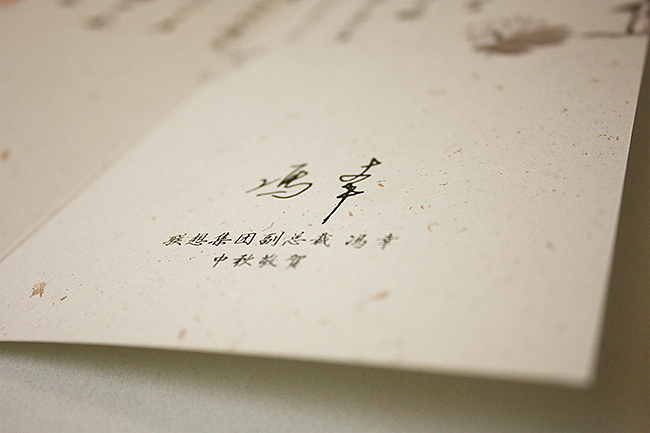 冯幸
联想集团副总裁 冯幸
中秋敬贺